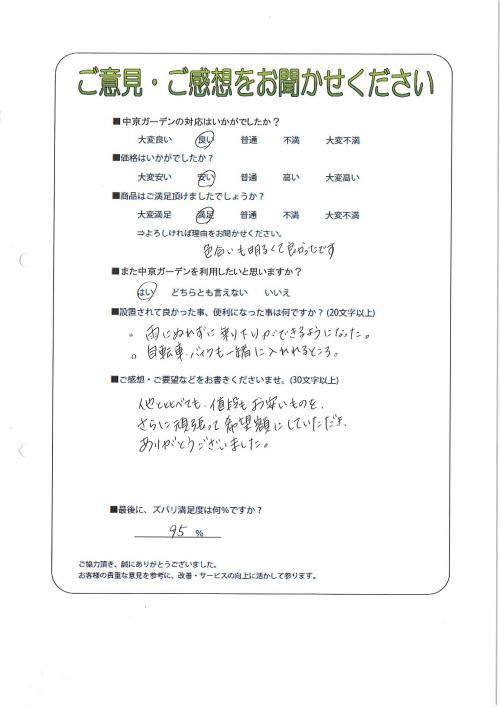 ご意見・ご感想をお聞かせください
■中京ガーデンの対応はいかがでしたか？
大変良い 良い 普通 不満 大変不満
■価格はいかがでしたか？
大変安い 安い 普通 高い 大変高い
■商品はご満足頂けましたでしょうか？
大変満足 満足 普通 不満 大変不満
⇒よろしければ理由をお聞かせください。
色合いも明るくて良かったです
■また中京ガーデンを利用したいと思いますか？
はい どちらとも言えない いいえ
■設置されて良かった事、便利になった事は何ですか？(20文字以上)
。雨にぬれずに乗り下りができるようになった。
。自転車、バイクも一緒に入れれるところ。
■ご感想・ご要望などをお書きくださいませ。(30文字以上)
他とくらべても、値段もお安いものを、
さらに頑張って希望額にしていただき、
ありがとうございました。
■最後に、ズバリ満足度は何％ですか？
95 %
ご協力頂き、誠にありがとうございました。
お客様の貴重な意見を参考に、改善・サービスの向上に活かして参ります。